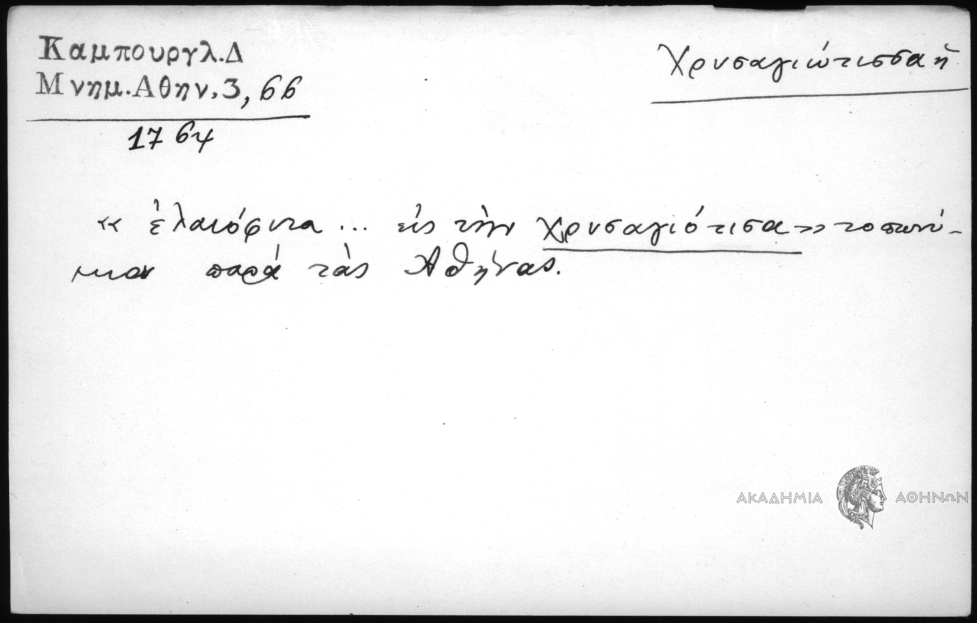 Καμπουργλ.Δ
Μνημ.Αθην.3, 66
1764
Χρυσαγιώτισσα ἡ
« ἐλαιόφυτα ... εἰς τὴν Χρυσαγιότισα» τοπωνύ-
μιον παρά τὰς Ἀθήνας.
ΑΚΑΔΗΜΙΑ ΑΘΗΝΩΝ